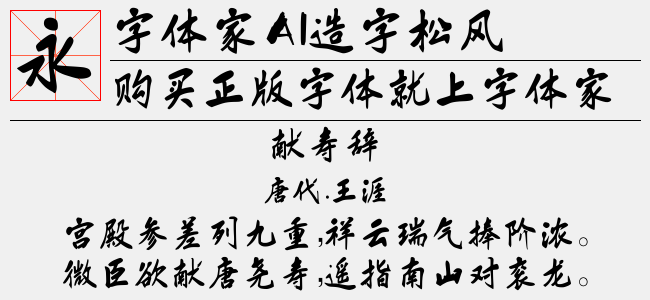 永
字体家AI造字松风
购买正版字体就上字体家
献寿辞
唐代.王涯
宫殿参差列九重,祥云瑞气捧阶浓。
微臣欲献唐尧寿,遥指南山对衮龙。